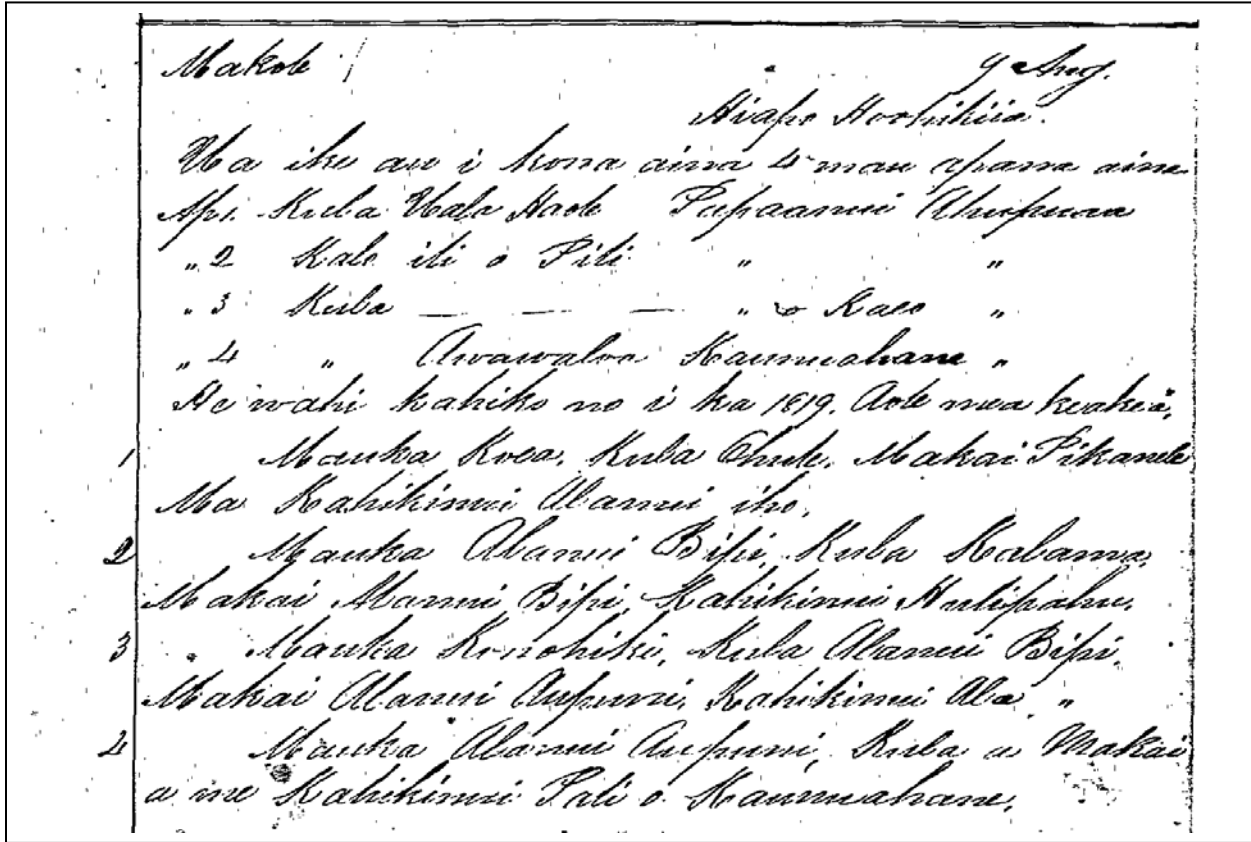 Makole
9 Aug.
Hiapo Hoohikiia.
Ua ike au i kona aina 4 mau apana aina
Ap1. Kula Uala Haole Papaanui Ahupuaa
" 2 Kalo ili o Pili " "
" 3 Kula — — — " o Kaeo "
" 4 " Awawaloa Kaumuahane "
He wahi kahiko no i ka 1819. Aole mea keakea.
1 Mauka Koea, Kula Makai Pikanele
Ma Kahikinui Alanui iho.
2 Mauka Alanui Bipi, Kula Kalama,
Makai Alanui Bipi, Kahikinui Hulipahu.
3 Mauka Konohiki, Kula Alanui Bipi,
Makai Alanui Aupuni, Kahikinui Ala "
4 Mauka Alanui Aupuni, Kula a Makai
a me Kahikinui Pali o Kaumuahane.